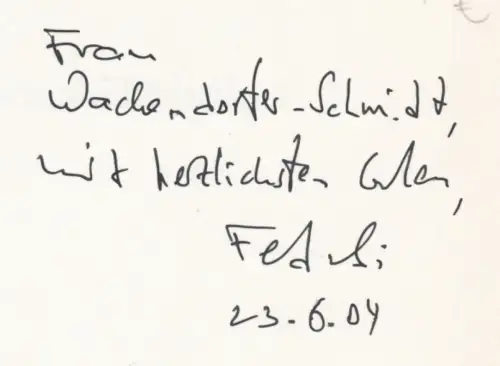 Frau
Wachendorfer-Schmidt,
mit herzlichsten
23.6.04